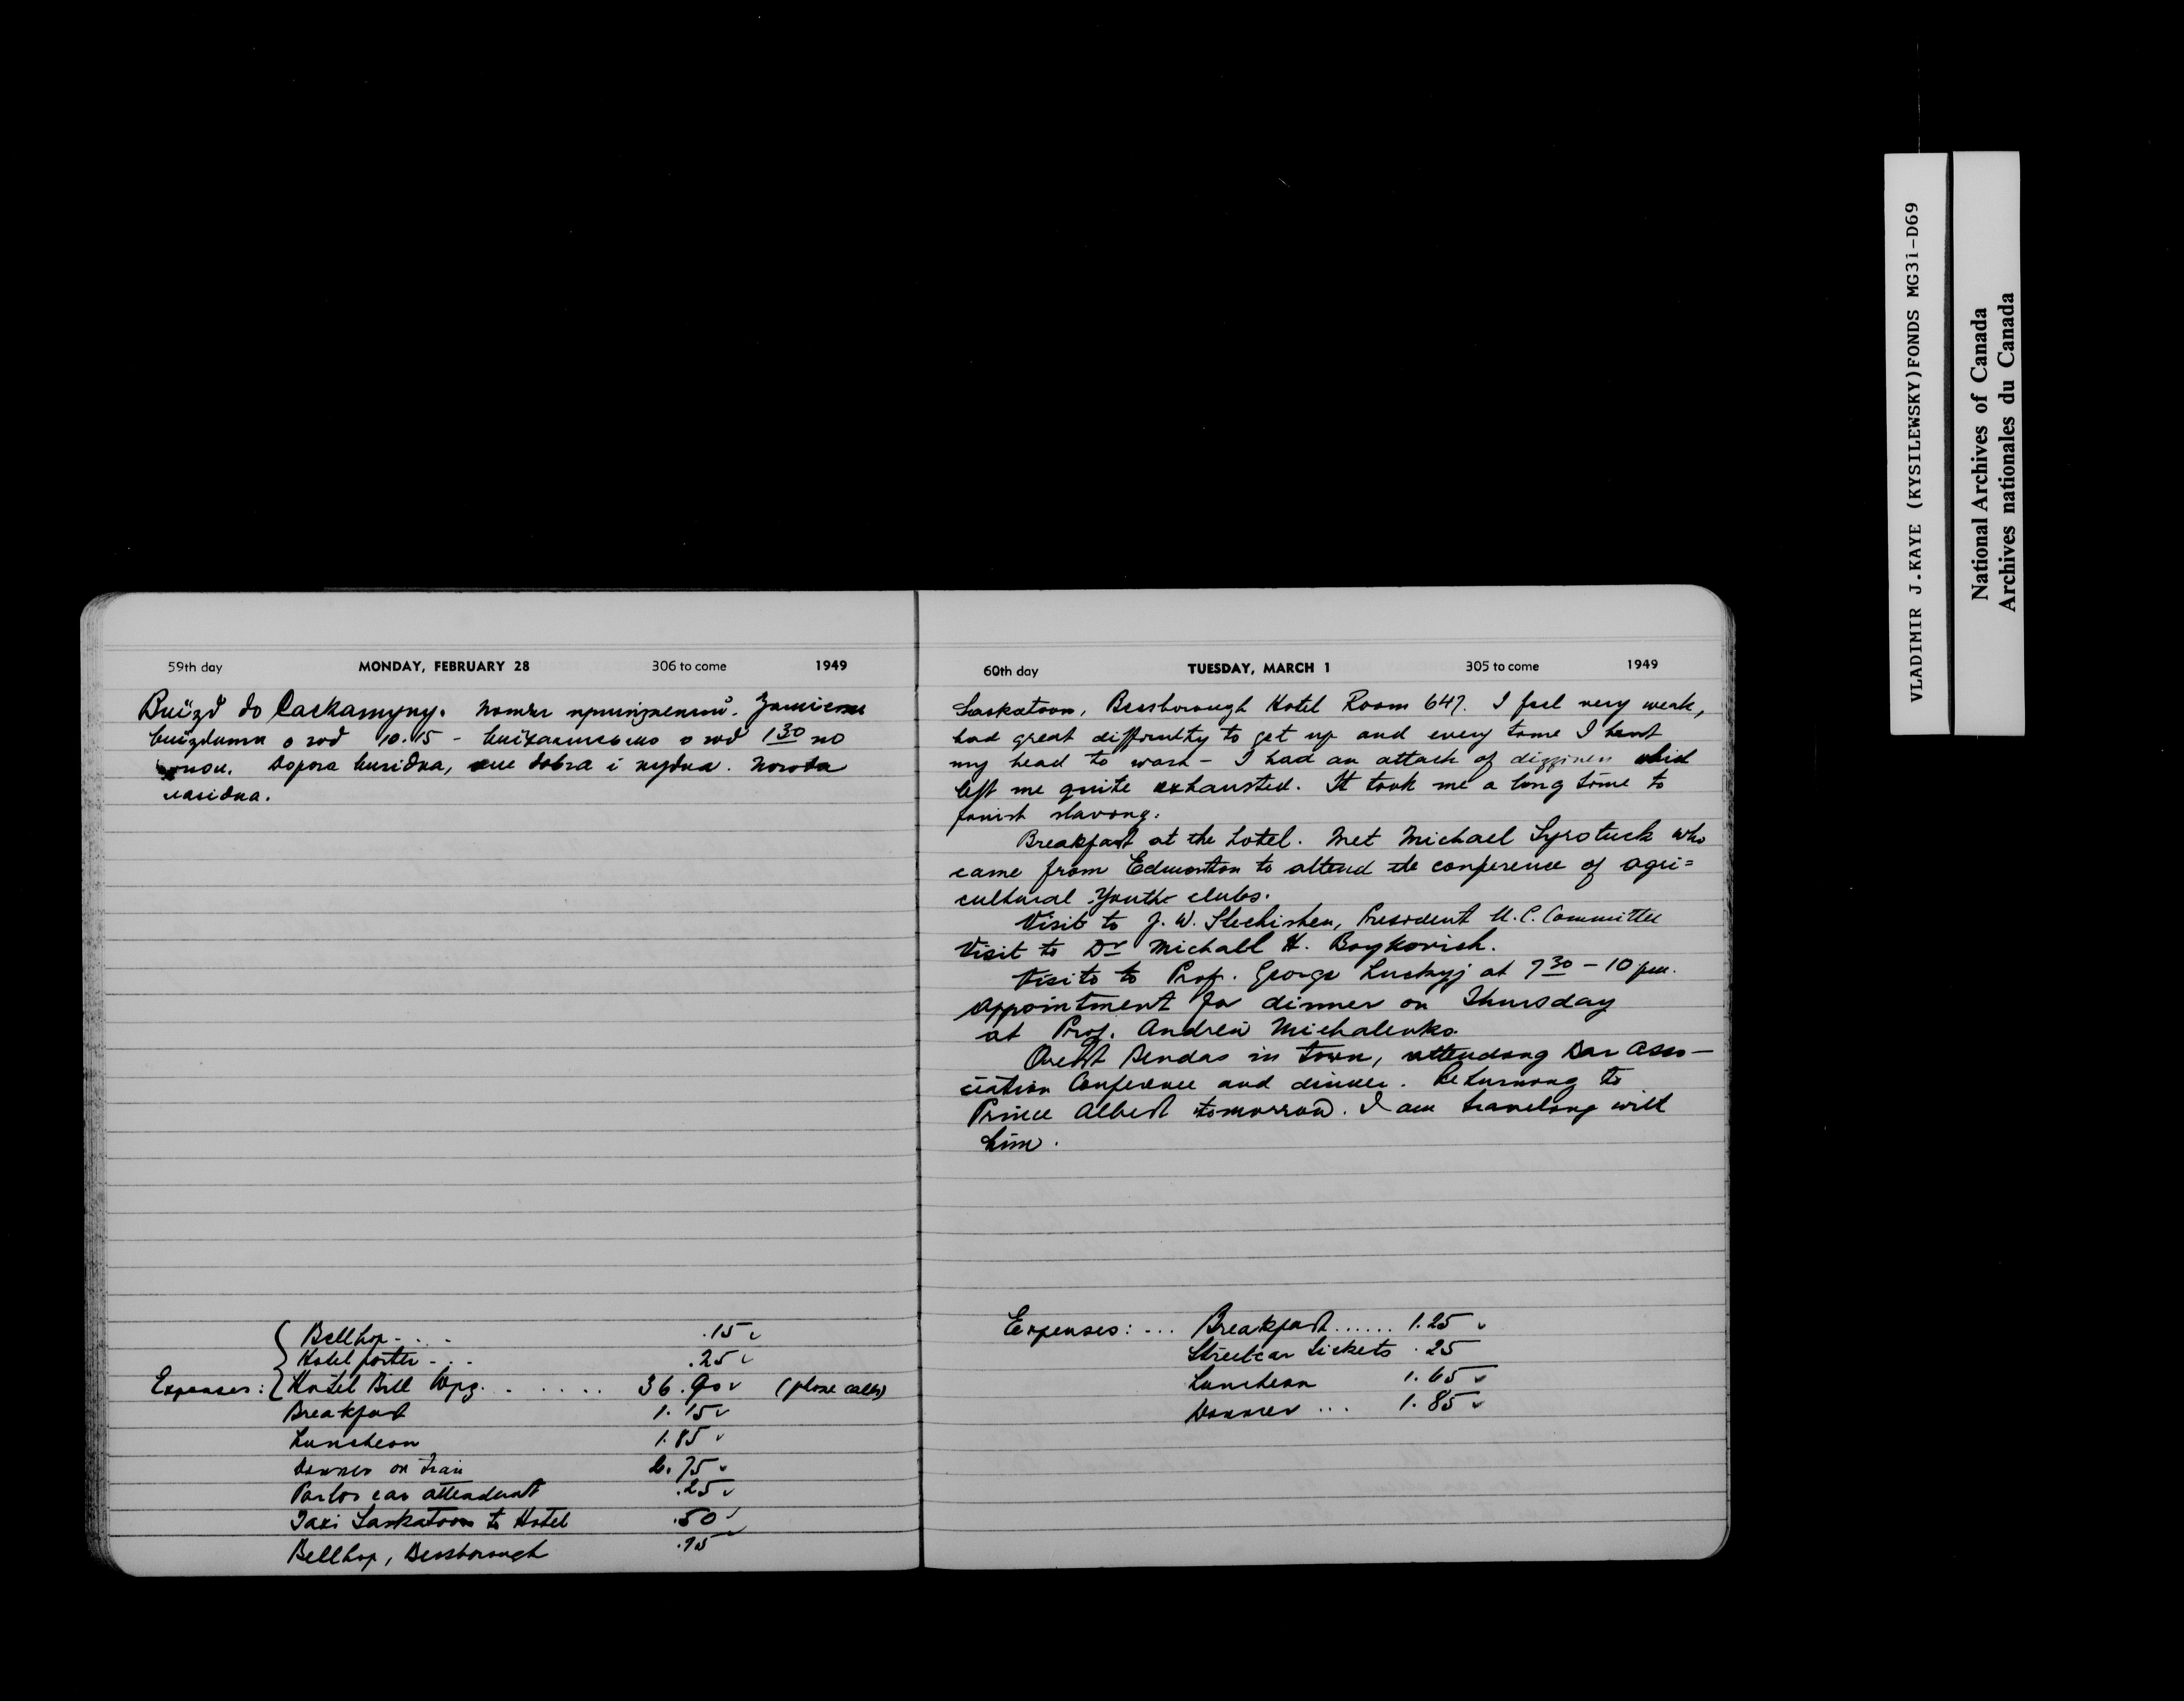 59th day MONDAY, FEBRUARY 28 306 to come 1949
Виїзд до Саскатуну. Потяг припізнений. Замість
виїздити о год 10.15 - виїхалисьмо о год 1 30 по
полн. Дорога вигідна, але довга і нудна. погода
лагідна.
{ Bellhop - . . - .15 ✓
Hotel porter - . - .25 ✓
Expenses: Hotel Bill Wpg. . . . . . . 36.90 ✓ (phone calls)
Breakfast 1.15 ✓
Luncheon 1.85 ✓
Dinner on train 2.75 ✓
Parlor car attendant .25 ✓
Taxi Saskatoon to Hotel .50 ✓
Bellhop, Bessborough
60th day TUESDAY, MARCH 1 305 to come 1949
Saskatoon, Bessborough Hotel Room 647. I feel very weak,
had great difficulty to get up and every time I bent
my head to wash - I had an attack of dizziness which
left me quite exhausted. It took me a long time to
finish shaving.
Breakfast at the hotel. Met Michael Syrotuck who
came from Edmonton to attend the conference of agri=
cultural Youth clubs.
Visit to J. W. Stechishen, President U.C. Committee
Visit to Dr Michall H. Boykovich.
Visits to Prof. George Luckyj at 7 30 - 10 pm.
Appointment for dinner on Thursday
at Prof. Andrew Michalenko.
Orest Bendas in town, attending Bar Asso-
ciation Conference and dinner. Returning to
Prince Albert tomorrow. I am traveling with
him.
Expenses: ... Breakfast...... 1.25 ✓
Streetcar tickets .25
Luncheon 1.65 ✓
Dinner ... 1.85 ✓
VLADIMIR J.KAYE (KYSILEWSKY)FONDS MG3i-D69
National Archives of Canada
Archives nationales du Canada